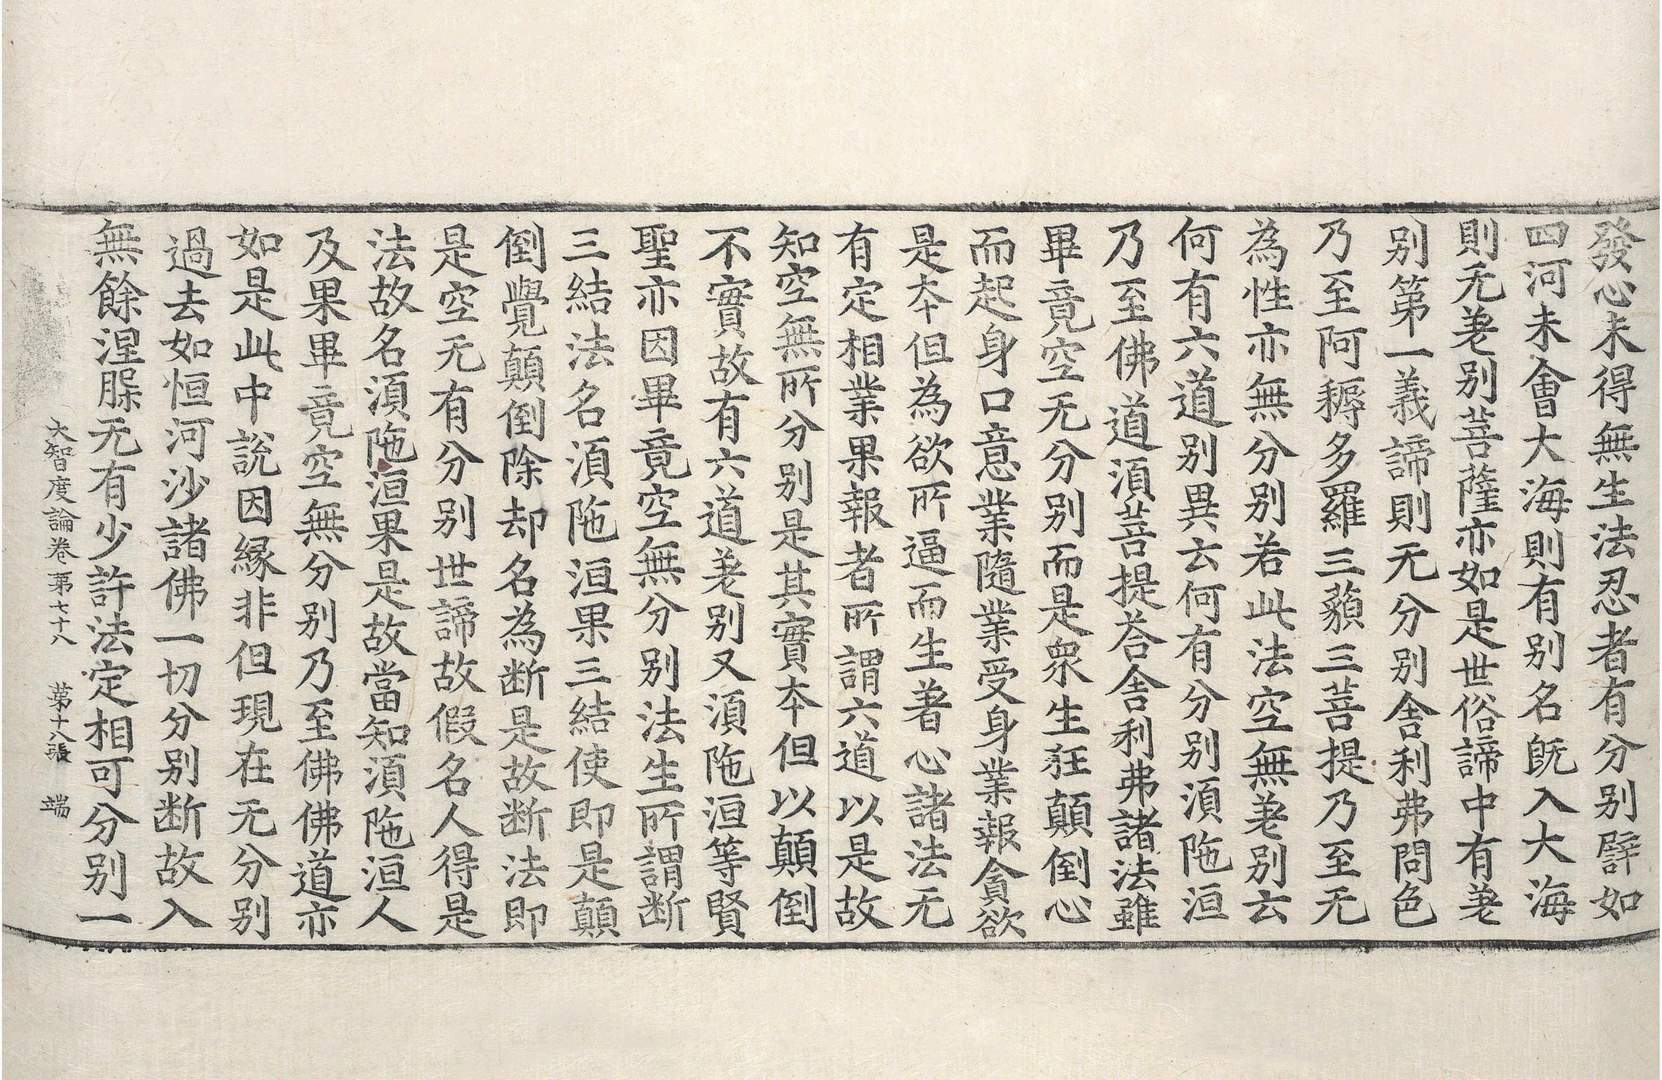 發心未得無生法忍者有分别譬如
四河未會大海則有别名旣入大海
則无差别菩薩亦如是世俗諦中有差
别第一義諦則无分别舍利弗問色
乃至阿耨多羅三藐三菩提乃至无
為性亦無分别若此法空無差别云
何有六道别異云何有分别須陁洹
乃至佛道須菩提荅舍利弗諸法雖
畢竟空无分别而是衆生狂顛倒心
而起身口意業隨業受身業報貪欲
是夲但為欲所逼而生著心諸法无
有定相業果報者所謂六道以是故
知空無所分别是其實夲但以顛倒
不實故有六道差别又須陁洹等賢
聖亦因畢竟空無分别法生所謂断
三結法名須陁洹果三結使即是顛
倒覺顛倒除却名為断是故断法即
是空无有分别世諦故假名人得是
法故名須陁洹果是故當知須陁洹人
及果畢竟空無分别乃至佛佛道亦
如是此中説因縁非但現在无分别
過去如恒河沙諸佛一切分别断故入
無餘涅槃无有少許法定相可分别一
大智度論卷第七十八 第十八張 端